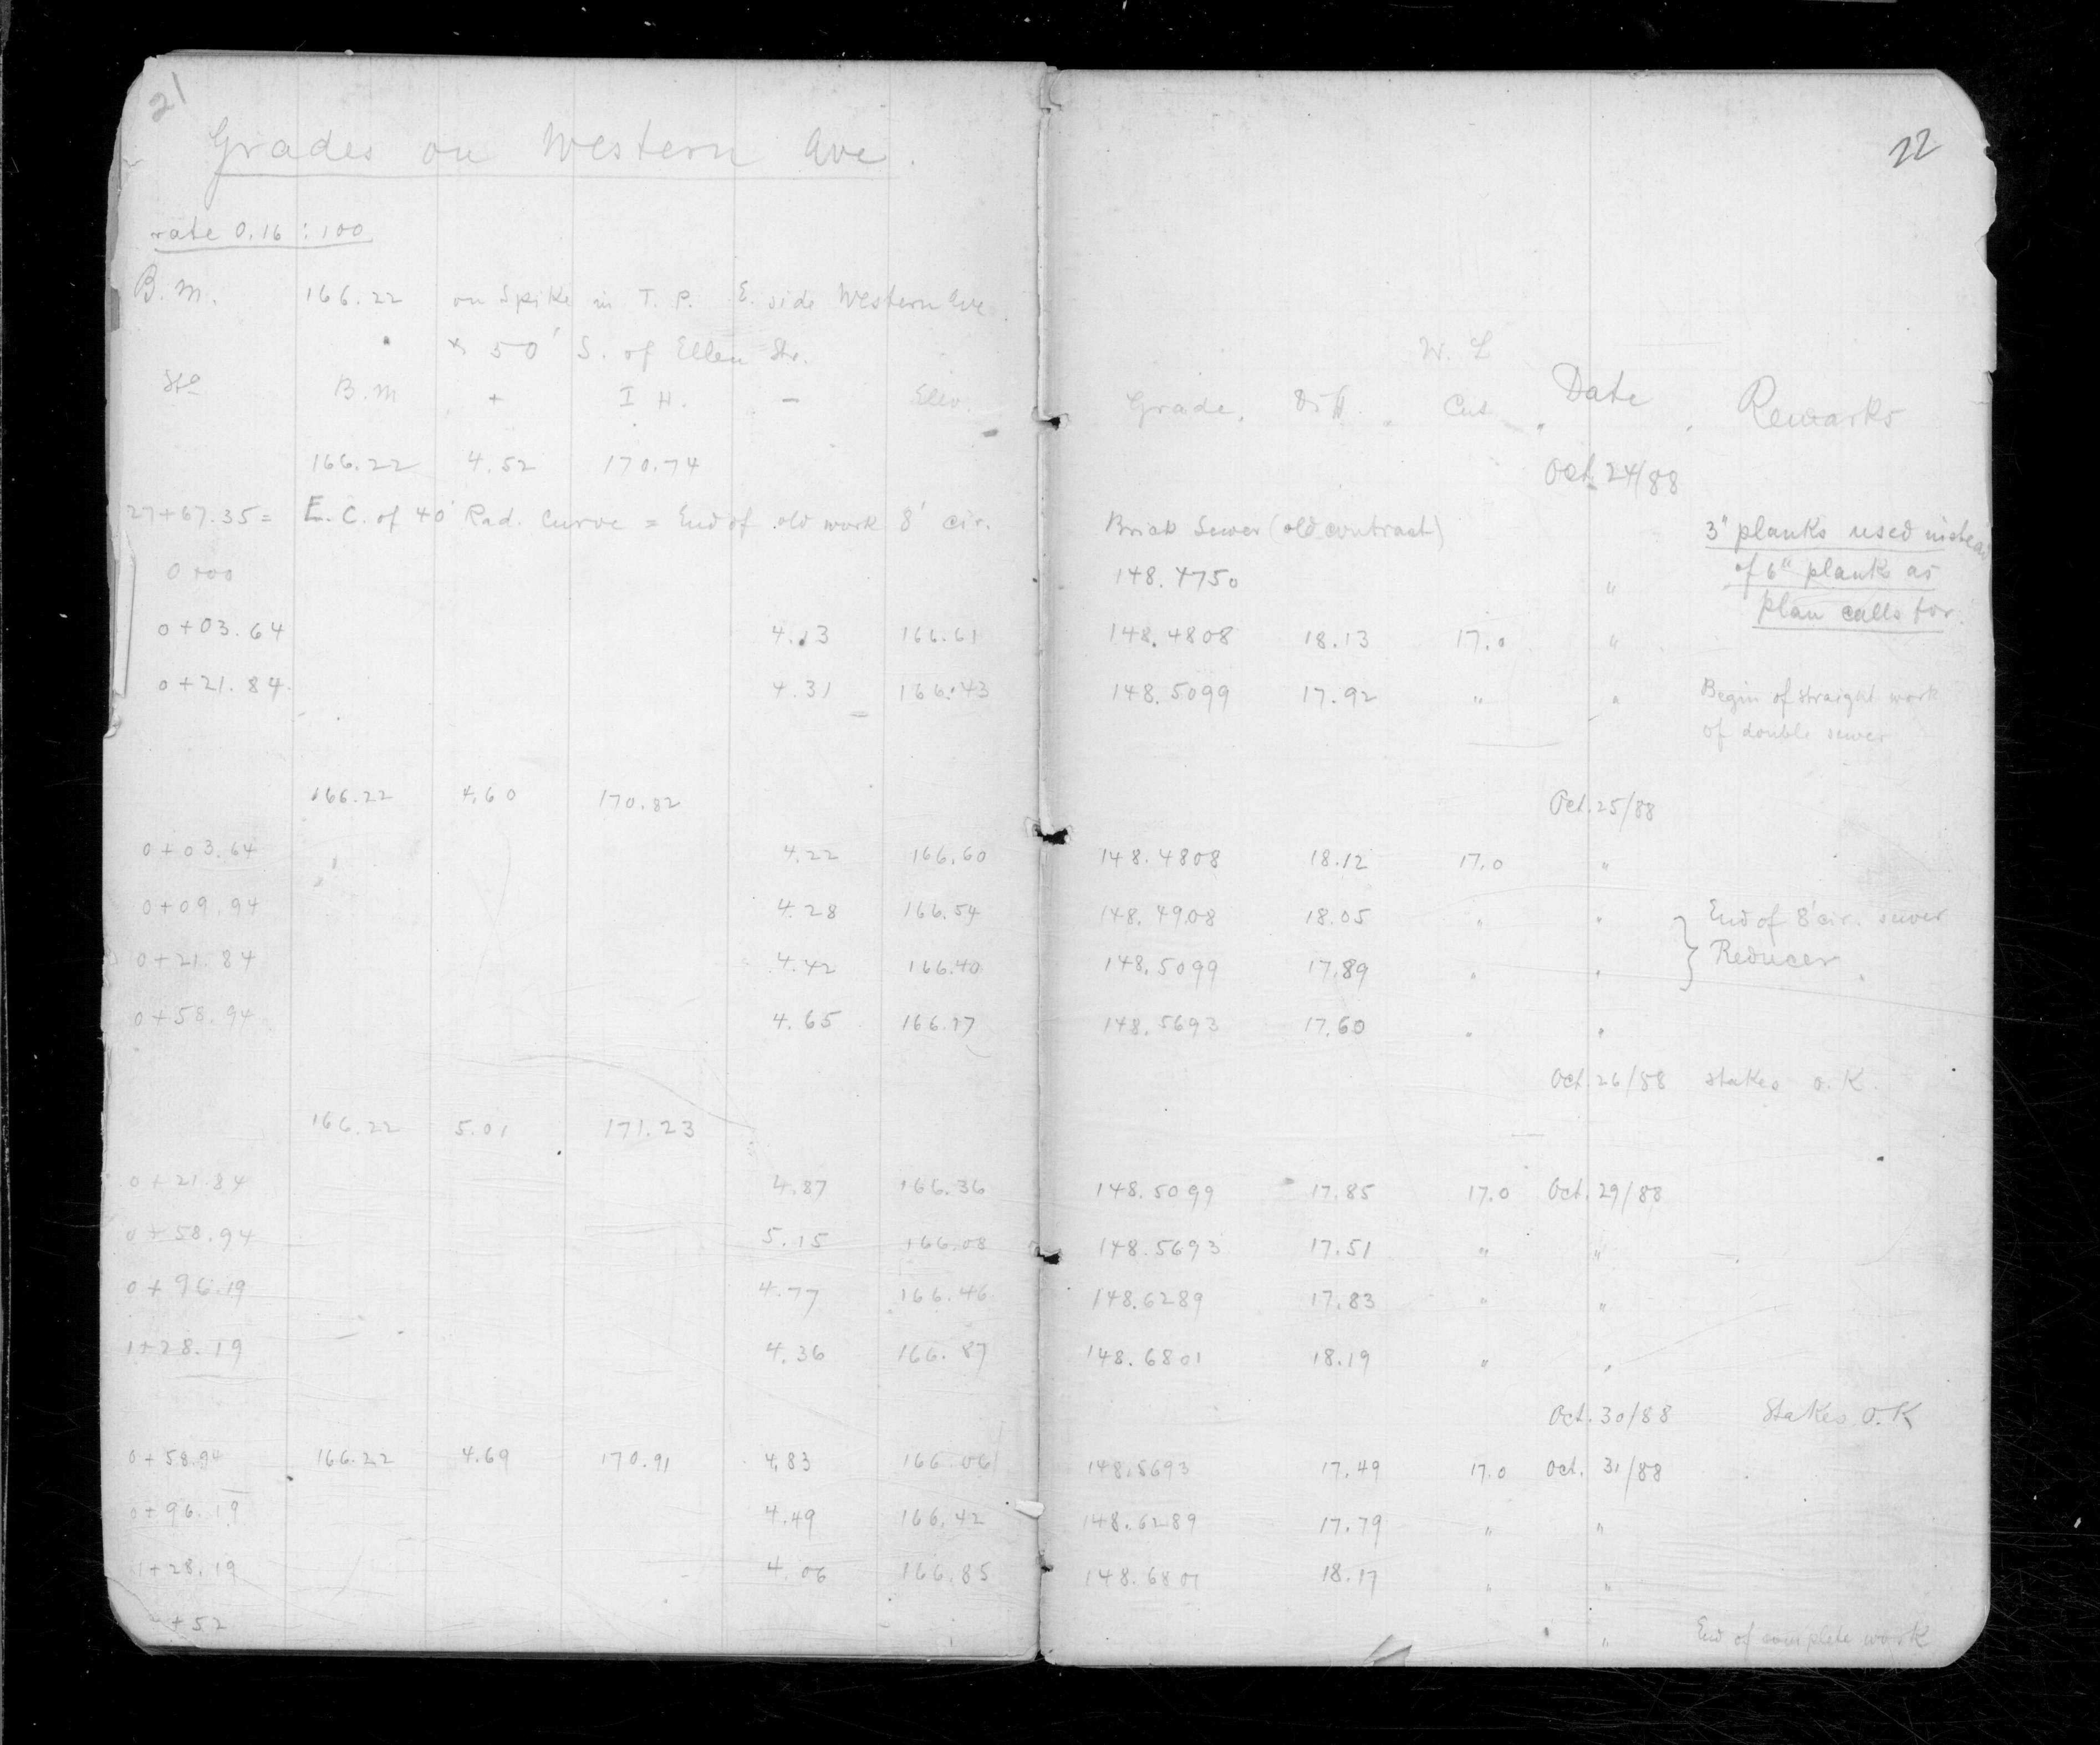 21
Grades on Western Ave.
rate 0.16 : 100
B.M. 166.22 on Spike in T.P. E. side Western Ave.
50' S. of Ellen Str.
Sta B.M + I H. - Elev.
166.22 4.52 170.74
27+67.35= E.C. of 40' Rad. Curve = End of old work 8' cir.
0+00
0+03.64 4.13 166.61
0+21.84 4.31 166.43
166.22 4.60 170.82
0+03.64 " 4.22 166.60
0+09.94 4.28 166.54
0+21.84 4.42 166.40
0+58.94 4.65 166.17
166.22 5.01 171.23
0+21.84 4.87 166.36
0+58.94 5.15 166.08
0+96.19 4.77 166.46
1+28.19 4.36 166.87
0+58.94 166.22 4.69 170.91 4.83 166.06
0+96.19 4.49 166.42
1+28.19 4.06 166.85
+52
22
W. L
Grade, Diff " Cut " Date " Remarks
Oct. 24/88
Brick Sewer (old contract) 3" planks used instead
148.4750 " of 6" planks as
plan calls for.
148.4808 18.13 17.0 "
148.5099 17.92 " " Begin of straight work
of double sewer
Oct. 25/88
148.4808 18.12 17.0 "
148.4908 18.05 " " End of 8' cir. sewer
148.5099 17.89 " " } Reducer
148.5693 17.60 " "
Oct. 26/88 Stakes O.K.
148.5099 17.85 17.0 Oct. 29/88
148.5693 17.51 " "
148.6289 17.83 " "
148.6801 18.19 " "
Oct. 30/88 Stakes O.K
148.5693 17.49 17.0 Oct. 31/88
148.6289 17.79 " "
148.6801 18.17 " "
" End of complete work